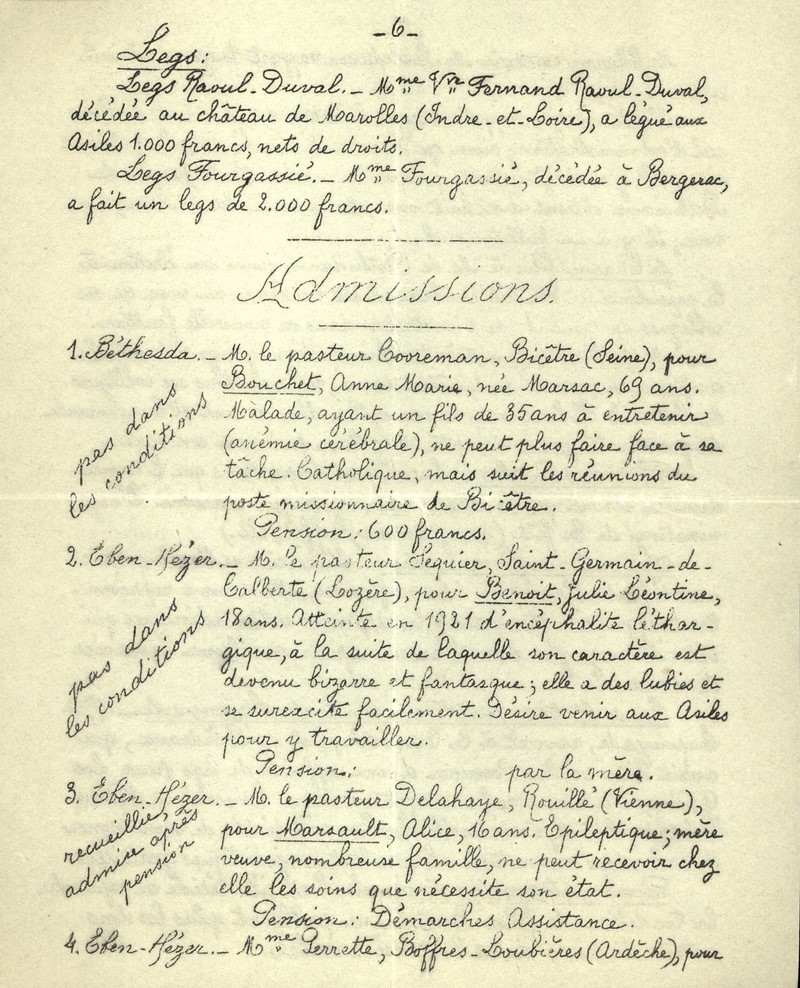 -6-
Legs:
Legs Raoul-Duval._ Mme Vve Fernand Raoul-Duval,
décédée au château de Marolles (Indre-et-Loire), a légué aux
Asiles 1.000 francs, nets de droits.
Legs Fourgassié._ Mme Fourgassié, décédée à Bergerac,
a fait un legs de 2.000 francs.
Admissions.
1. Béthesda._ M. le pasteur Cooreman, Bicêtre (Seine), pour
Bouchet, Anne Marie, née Marsac, 69 ans.
Malade, ayant un fils de 35 ans à entretenir
(anémie cérébrale), ne peut plus faire face à sa
tâche. Catholique, mais suit les réunions du
poste missionnaire de Bicêtre.
Pension: 600 francs.
pas dans
les conditions
2. Eben-Hézer._ M. le pasteur Sequier, Saint-Germain-de-
Calberte (Lozère), pour Benoit, Julie Léontine,
18 ans. Atteinte en 1921 d'encéphalite léthar-
gique, à la suite de laquelle son caractère est
devenu bizarre et fantasque; elle a des lubies et
se surexcite facilement. Désire venir aux Asiles
pour y travailler.
Pension: par la mère.
pas dans
les conditions
3. Eben-Hézer._ M. le pasteur Delahaye, Rouillé (Vienne),
pour Marsault, Alice, 16 ans. Epileptique; mère
veuve, nombreuse famille, ne peut recevoir chez
elle les soins que nécessite son état.
Pension: Démarches Assistance.
recueillie,
admise après
pension
4. Eben-Hézer._ Mme Perrette, Boffres-Loubières (Ardèche), pour